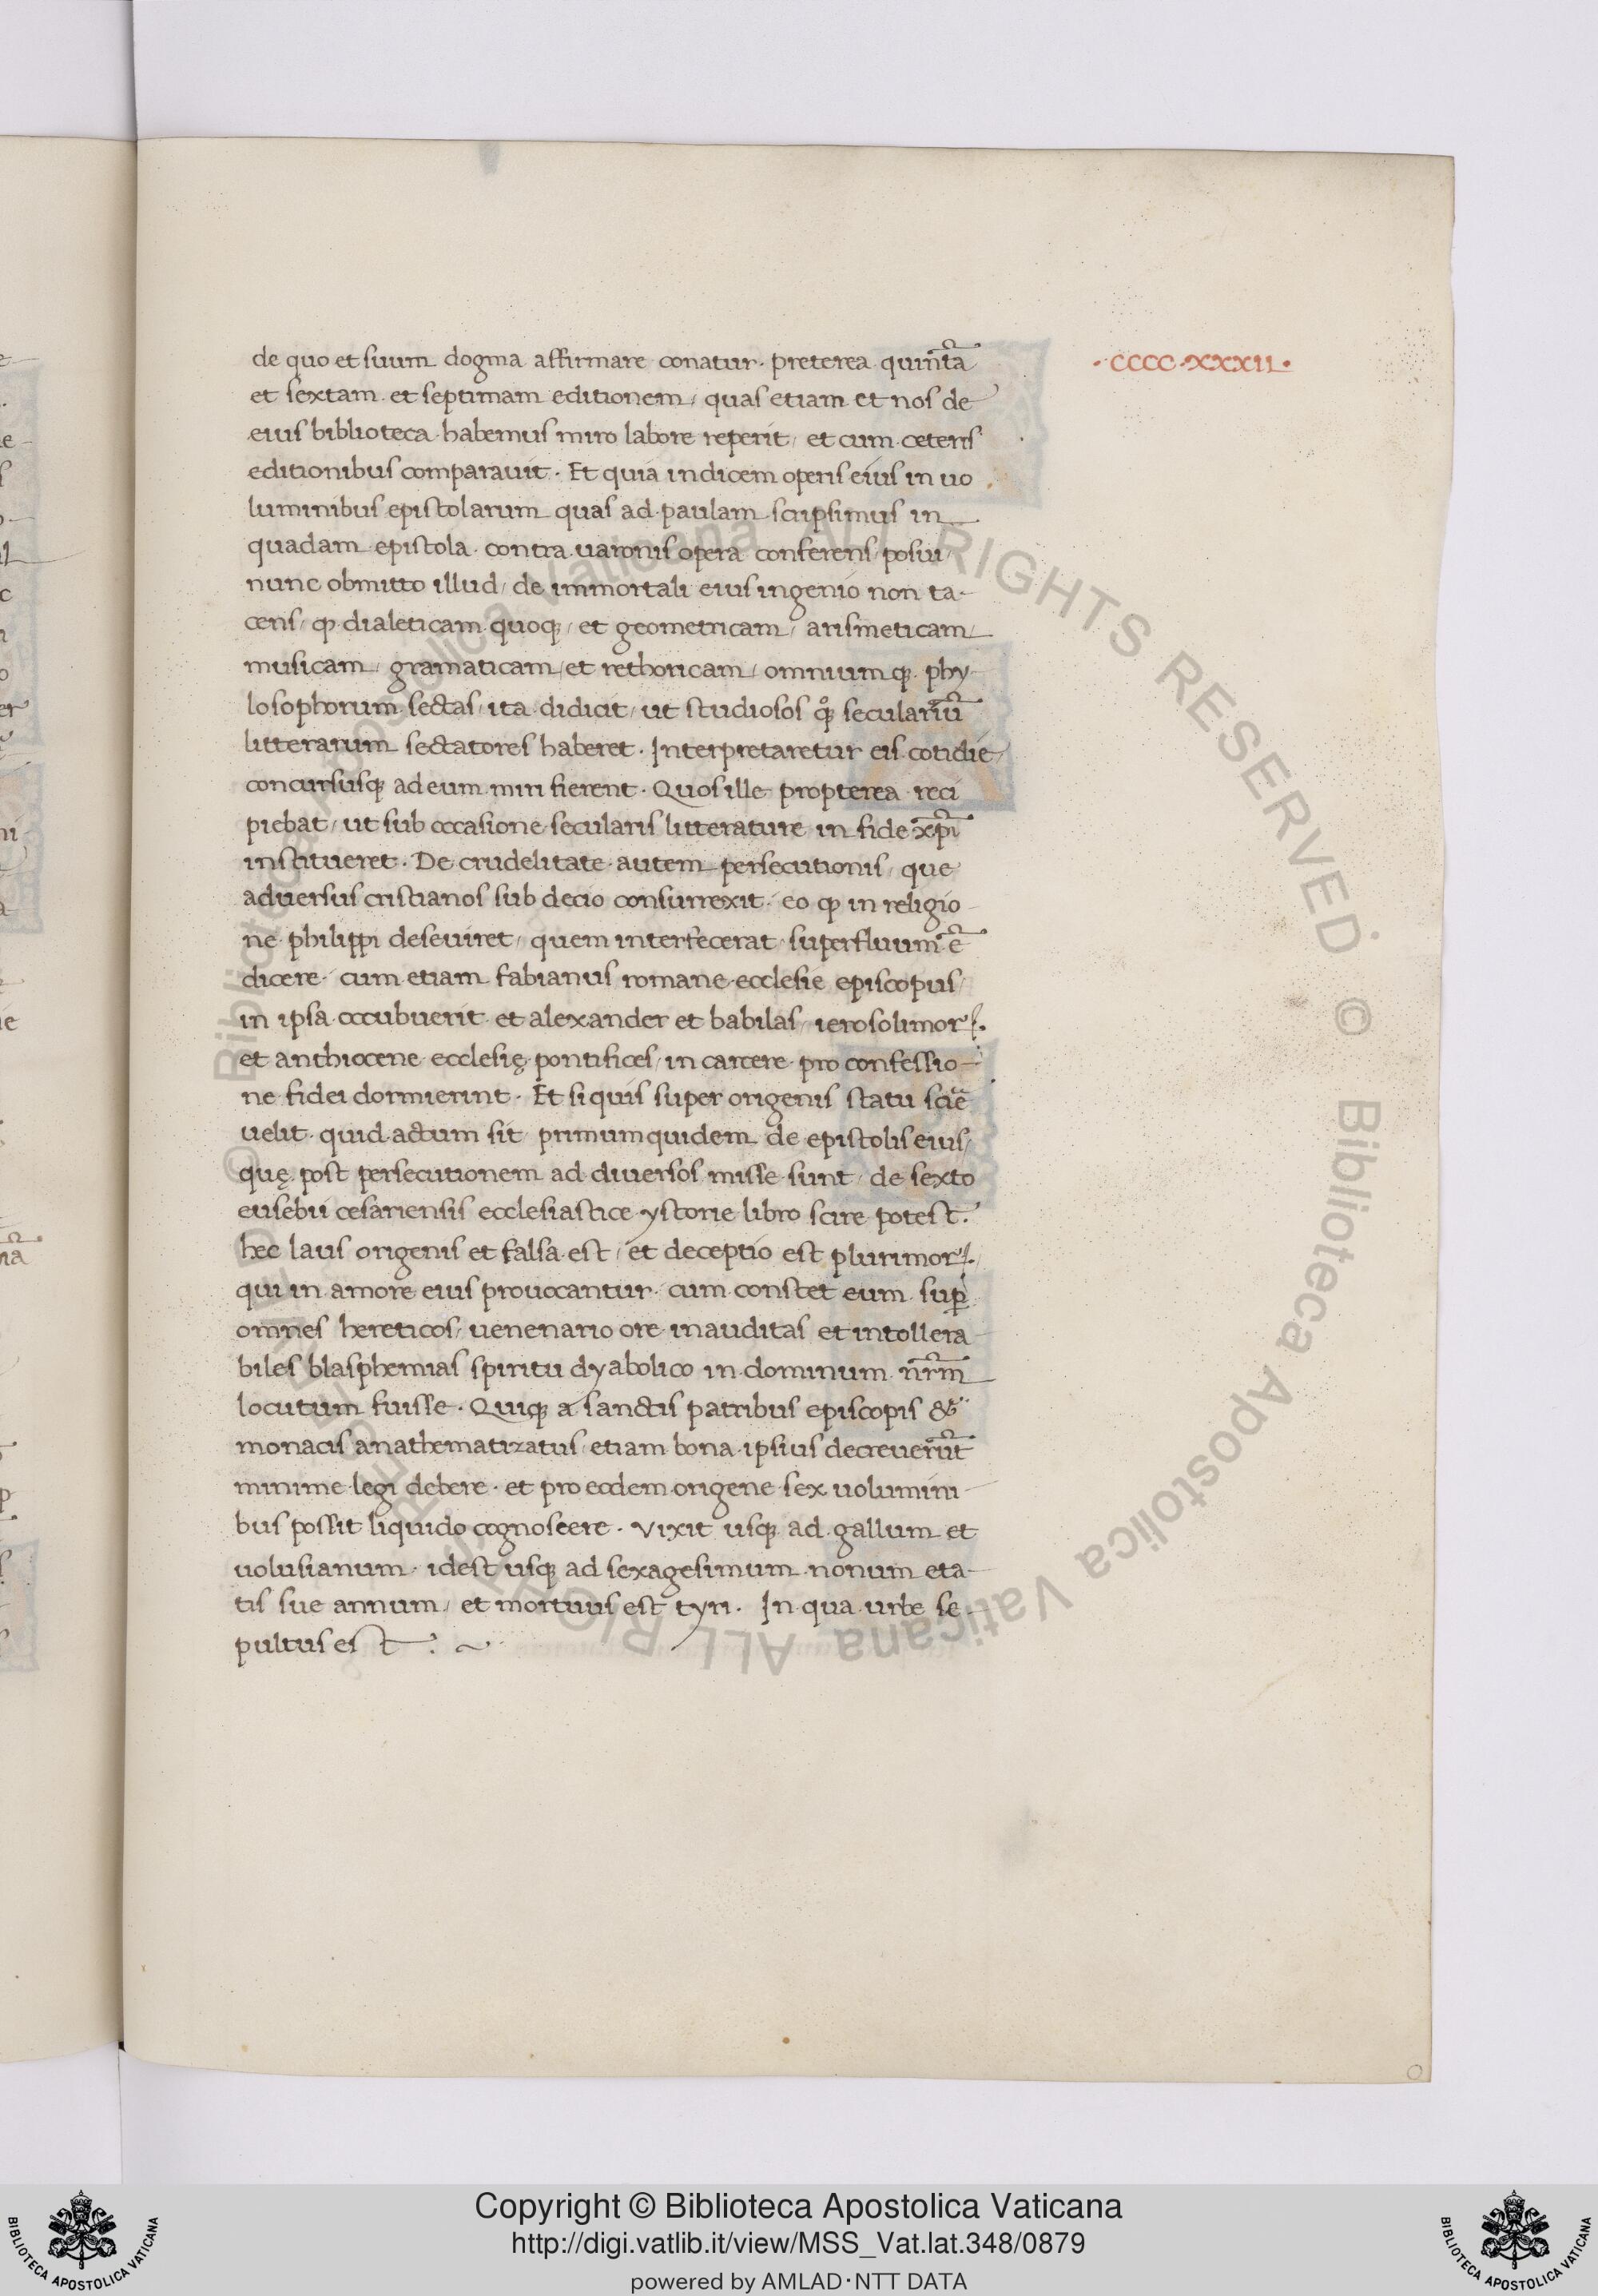 de quo et suum dogma affirmare conatur. preterea quint̄a
·CCCC·XXXII·
et sextam et septimam editionem, quas etiam et nos de
eius biblioteca habemus miro labore reperit, et cum ceteris
editionibus comparauit. Et quia indicem operis eius in uo
luminibus epistolarum quas ad paulam scripsimus in
quadam epistola contra uaronis opera conferens, posui,
nunc obmitto illud, de immortali eius ingenio non ta-
cens, ꝙ dialeticam quoqꝫ, et geometricam, arismeticam,
musicam, gramaticam, et rethoricam, omniumqꝫ phy-
losophorum sectas, ita didicit, ut studiosos qͦꝫ seculariū
litterarum sectatores haberet. Interpretaretur eis cotidie,
concursusqꝫ ad eum miri fierent. Quos ille propterea reci
piebat, ut sub occasione secularis litterature in fide xp̄i
institueret. De crudelitate autem persecutionis, que
aduersus cristianos sub decio consurrexit. eo ꝙ in religio-
ne philippi deseuiret, quem interfecerat superfluum ē
dicere. cum etiam fabianus romane ecclesie episcopus,
in ipsa occubuerit et alexander et babilas, ierosolimoꝝ.
et anthiocene ecclesię pontifices, in carcere pro confessio-
ne fidei dormierint. Et si quis super origenis statu scir̄e
uelit quid actum sit primum quidem de epistolis eius,
quę post persecutionem ad diuersos misse sunt, de sexto
eusebii cesariensis ecclesiastice ystorie libro scire potest.
hec laus origenis et falsa est, et deceptio est plurimoꝝ,
qui in amore eius prouocantur. cum constet eum sup̄
omnes hereticos, uenenario ore inauditas et intollera-
biles blasphemias spiritu dyabolico in dominum nr̄m
locutum fuisse. Quiqꝫ a sanctis patribus episcopis &
monacis anathematizatus, etiam bona ipsius decreuerūt
minime legi debere. et pro eodem origene sex uolumini-
bus possit liquido cognoscere. Vixit usqꝫ ad gallum et
uolusianum. idest usqꝫ ad sexagesimum nonum eta-
tis sue annum, et mortuus est tyri. In qua urbe se-
pultus est. ~
© Biblioteca Apostolica Vaticana ALL RIGHTS RESERVED
© Biblioteca Apostolica Vaticana ALL RIGHTS RESERVED
Copyright © Biblioteca Apostolica Vaticana
http://digi.vatlib.it/view/MSS_Vat.lat.348/0879
powered by AMLAD·NTT DATA
BIBLIOTECA APOSTOLICA VATICANA
BIBLIOTECA APOSTOLICA VATICANA